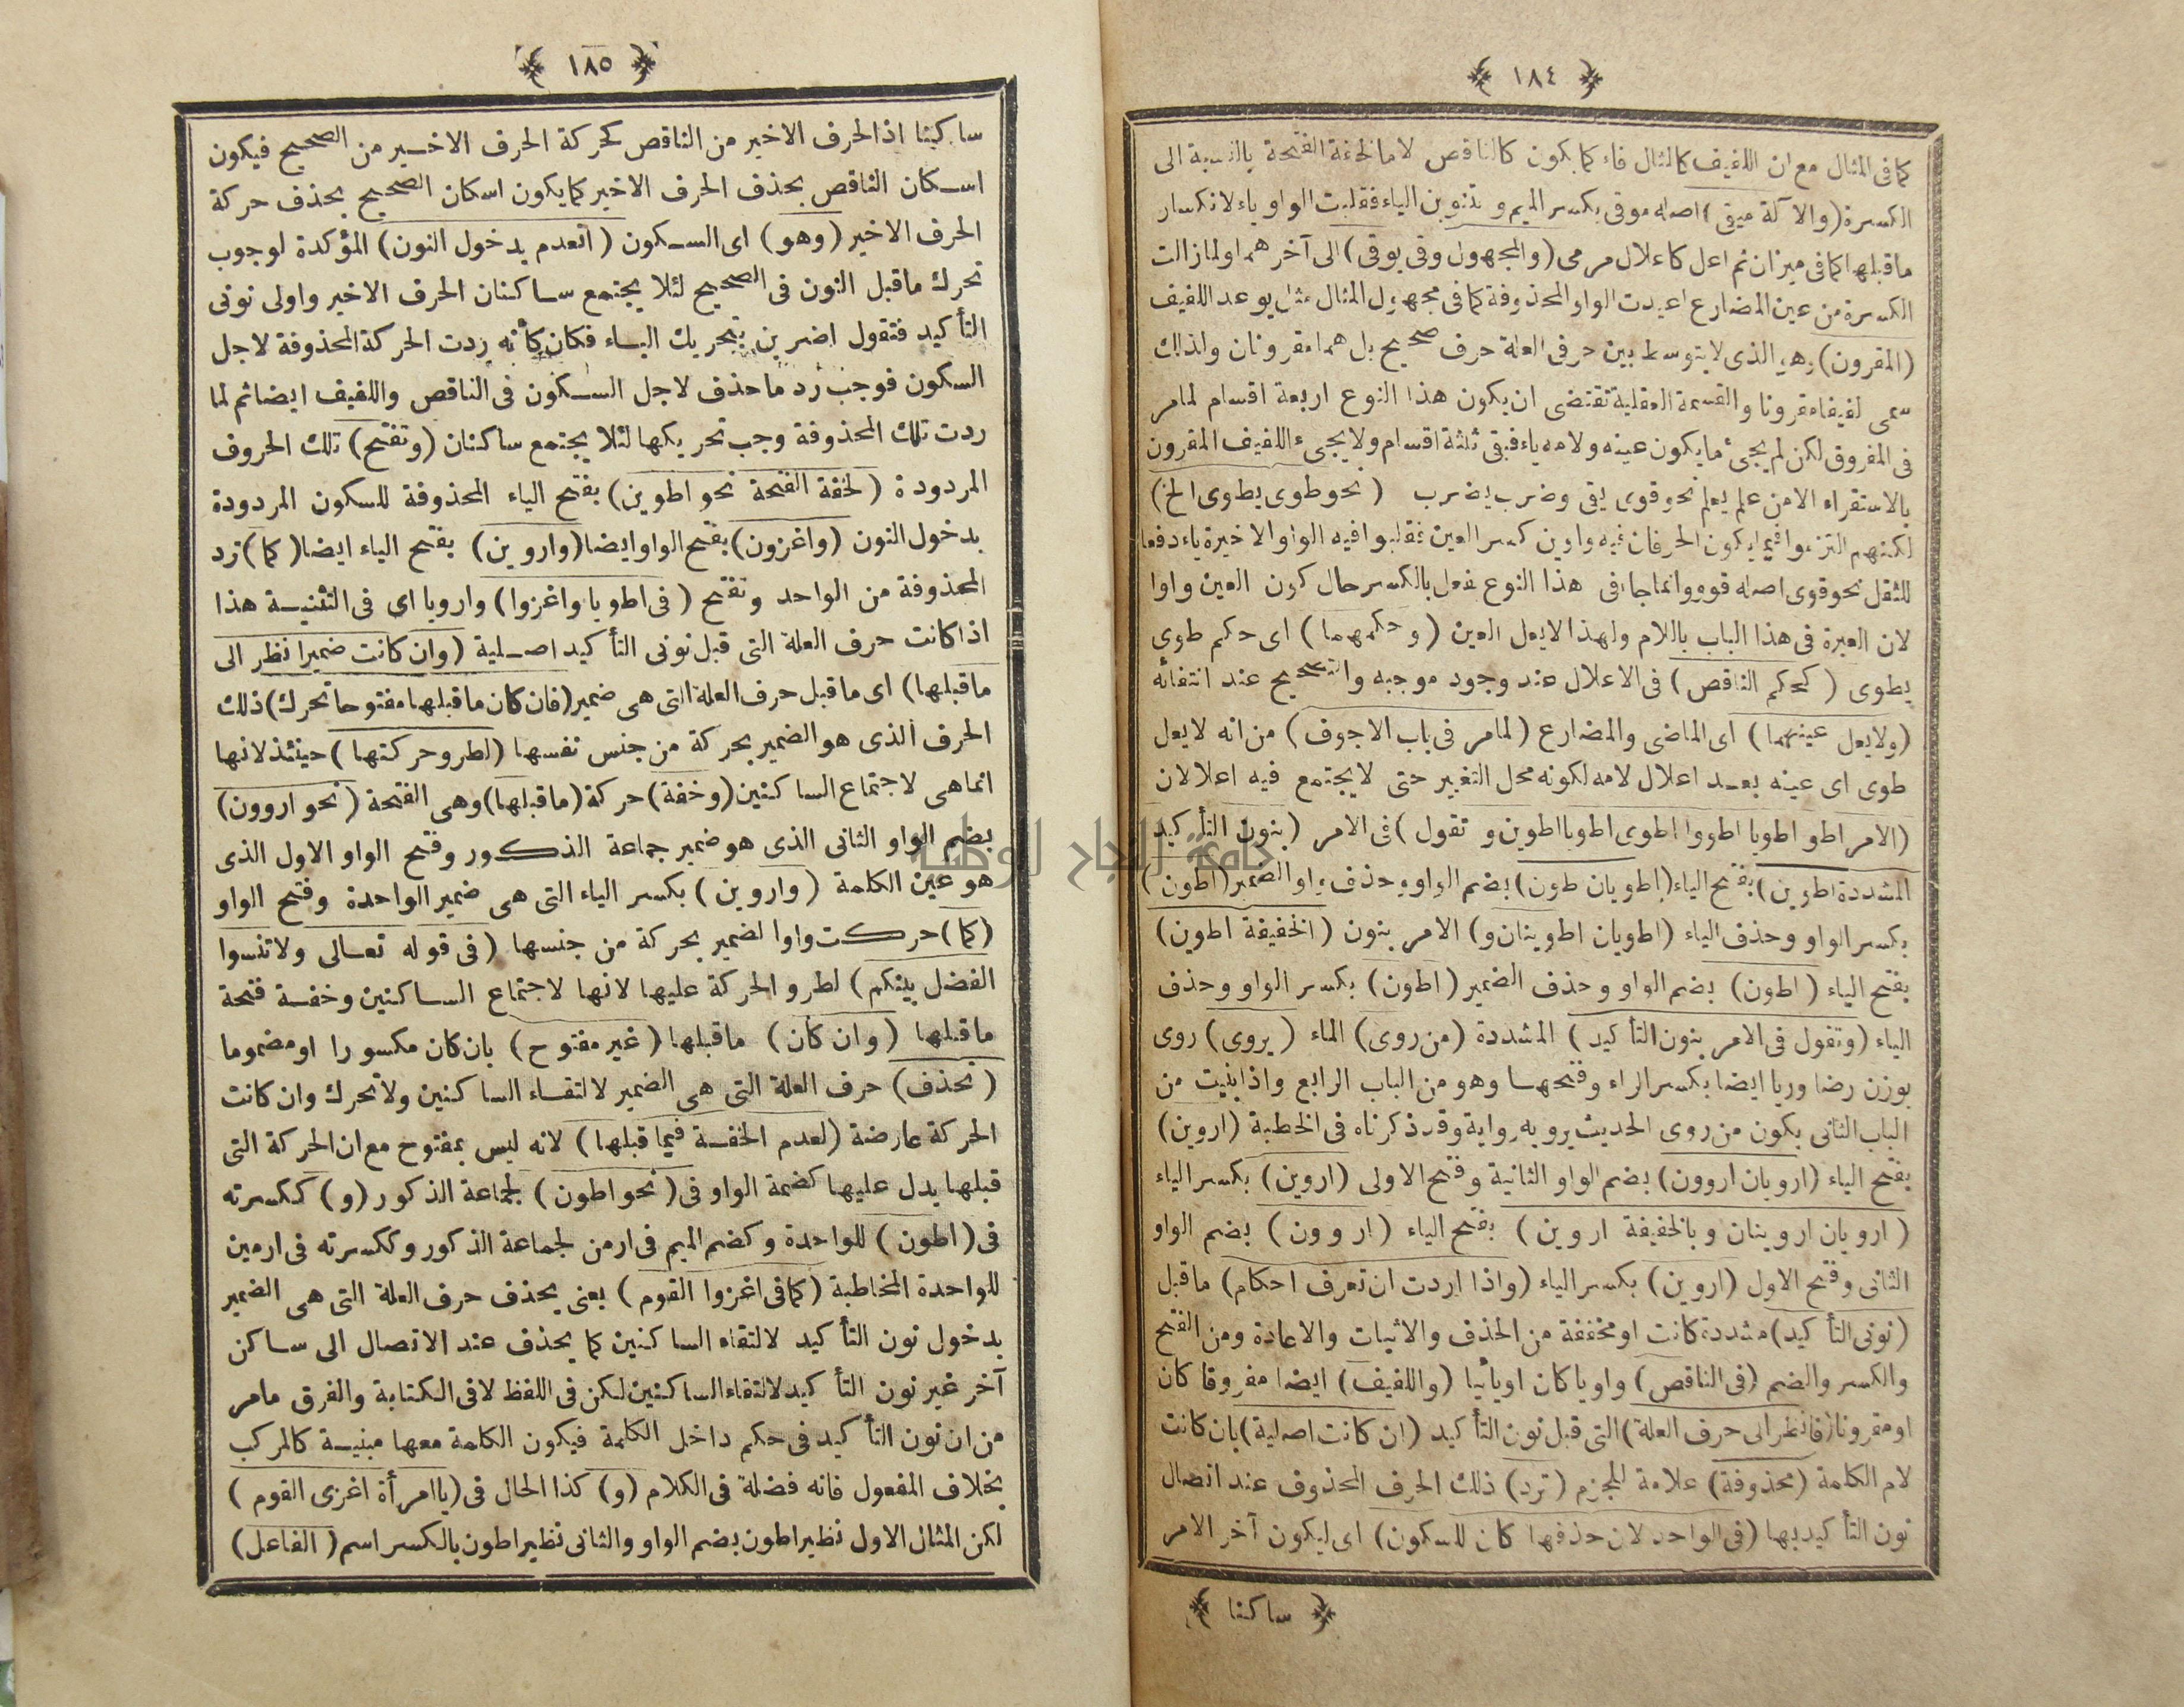 ﴿ ١٨٤ ﴾
كما فى المثال مع ان اللفيف كالمثال فاء كما يكون كالناقص لاما لخفة الفتحة بالنسبة الى
الكسرة (والآلة ميقى) اصله موقى بكسر الميم وتنوين الياء فقلبت الواو ياء لانكسار
ما قبلها كما فى ميزان ثم اعل كاعلال مرمى (والمجهول وقى يوقى) الى آخرهما ولما زالت
الكسرة من عين المضارع اعيدت الواو المحذوفة كما فى مجهول المثال مثل يوعد اللفيف
(المقرون) وهو الذى لا يتوسط بين حرفى العلة حرف صحيح بل هما مقرونان ولذلك
سمى لفيفا مقرونا والقسمة العقلية تقتضى ان يكون هذا النوع اربعة اقسام لما مر
فى المفروق لكن لم يجئ ما يكون عينه ولامه ياء فبقى ثلثة اقسام ولا يجىء اللفيف المقرون
بالاستقراء الا من علم يعلم نحو قوى يقى وضرب يضرب (نحو طوى يطوى الخ)
لكنهم التزموا فيما يكون الحرفان فيه واوين كسر العين فقلبوا فيه الواو الاخيرة ياء دفعا
للثقل نحو قوى اصله قوو وانما جا فى هذا النوع فعل بالكسر حال كون العين واوا
لان العبرة فى هذا الباب باللام ولهذا لا يعل العين (وحكمهما) اى حكم طوى
يطوى (كحكم الناقص) فى الاعلال عند وجود موجبه والتصحيح عند انتفائه
(ولا يعل عينهما) اى الماضى والمضارع (لما مر فى باب الاجوف) من انه لا يعل
طوى اى عينه بعد اعلال لامه لكونه محل التغيير حتى لا يجتمع فيه اعلالان
(الامر اطو اطويا اطووا اطوى اطويا اطوين وتقول) فى الامر (بنون التأكيد
المشددة اطوين) بفتح الياء (اطويان طون) بضم الواو وحذف واو الضمير (اطون)
بكسر الواو وحذف الياء (اطويان اطوينان و) الامر بنون (الخفيفة اطوين)
بفتح الياء (اطون) بضم الواو وحذف الضمير (اطون) بكسر الواو وحذف
الياء (وتقول فى الامر بنون التأكيد) المشددة (من روى) الماء (يروى) روى
بوزن رضا وريا ايضا بكسر الراء وفتحها وهو من الباب الرابع واذا بنيت من
الباب الثانى يكون من روى الحديث يرويه رواية وقد ذكرناه فى الخطبة (اروين)
بفتح الياء (ارويان اروون) بضم الواو الثانية وفتح الاولى (اروين) بكسر الياء
(ارويان اروينان وبالخفيفة اروين) بفتح الياء (اروون) بضم الواو
الثانى وفتح الاول (اروين) بكسر الياء (واذا اردت ان تعرف احكام) ما قبل
(نونى التأكيد) مشددة كانت او مخففة من الحذف والاثبات والاعادة ومن الفتح
والكسر والضم (فى الناقص) واويا كان اويائيا (واللفيف) ايضا مفروقا كان
او مقرونا (فانظر الى حرف العلة) التى قبل نون التأكيد (ان كانت اصلية) بان كانت
لام الكلمة (محذوفة) علامة للجزم (ترد) ذلك الحرف المحذوف عند اتصال
نون التأكيد بها (فى الواحد لان حذفها كان للسكون) اى ليكون آخر الامر
﴿ ساكنا ﴾
﴿ ١٨٥ ﴾
ساكنا اذ الحرف الاخير من الناقص كحركة الحرف الاخير من الصحيح فيكون
اسكان الناقص بحذف الحرف الاخير كما يكون اسكان الصحيح بحذف حركة
الحرف الاخير (وهو) اى السكون (انعدم بدخول النون) المؤكدة لوجوب
تحرك ما قبل النون فى الصحيح لئلا يجتمع ساكنان الحرف الاخير واولى نونى
التأكيد فتقول اضربن بتحريك الباء فكان كأنه ردت الحركة المحذوفة لاجل
السكون فوجب رد ما حذف لاجل السكون فى الناقص واللفيف ايضا ثم لما
ردت تلك المحذوفة وجب تحريكها لئلا يجتمع ساكنان (وتفتح) تلك الحروف
المردودة (لخفة الفتحة نحو اطوين) بفتح الياء المحذوفة للسكون المردودة
بدخول النون (واغزون) بفتح الواو ايضا (واروين) بفتح الياء ايضا (كما) ترد
المحذوفة من الواحد وتفتح (فى اطويا واغزوا) وارويا اى فى التثنية هذا
اذا كانت حرف العلة التى قبل نونى التأكيد اصلية (وان كانت ضميرا نظر الى
ما قبلها) اى ما قبل حرف العلة التى هى ضمير (فان كان ما قبلها مفتوحا تحرك) ذلك
الحرف الذى هو الضمير بحركة من جنس نفسها (لطرو حركتها) حينئذ لانها
انما هى لاجتماع الساكنين (وخفة) حركة (ما قبلها) وهى الفتحة (نحو اروون)
بضم الواو الثانى الذى هو ضمير جماعة الذكور وفتح الواو الاول الذى
هو عين الكلمة (واروين) بكسر الياء التى هى ضمير الواحدة وفتح الواو
(كما) حركت واو الضمير بحركة من جنسها (فى قوله تعالى ولا تنسوا
الفضل بينكم) لطرو الحركة عليها لانها لاجتماع الساكنين وخفة فتحة
ما قبلها (وان كان) ما قبلها (غير مفتوح) بان كان مكسورا او مضموما
(تحذف) حرف العلة التى هى الضمير لالتقاء الساكنين ولا تحرك وان كانت
الحركة عارضة (لعدم الخفة فيما قبلها) لانه ليس بمفتوح مع ان الحركة التى
قبلها يدل عليها كضمة الواو فى (نحو اطون) لجماعة الذكور (و) ككسرته
فى (اطون) للواحدة وكضم الميم فى ارمن لجماعة الذكور وككسرته فى ارمين
للواحدة المخاطبة (كما فى اغزوا القوم) يعنى يحذف حرف العلة التى هى الضمير
بدخول نون التأكيد لالتقاء الساكنين كما يحذف عند الاتصال الى ساكن
آخر غير نون التأكيد لالتقاء الساكنين لكن فى اللفظ لا فى الكتابة والفرق مامر
من ان نون التأكيد فى حكم داخل الكلمة فيكون الكلمة معها مبنية كالمركب
بخلاف المفعول فانه فضلة فى الكلام (و) كذا الحال فى (يا امرأة اغزى القوم)
لكن المثال الاول نظير اطون بضم الواو والثانى نظير اطون بالكسر اسم (الفاعل)
جامعة النجاح الوطنية